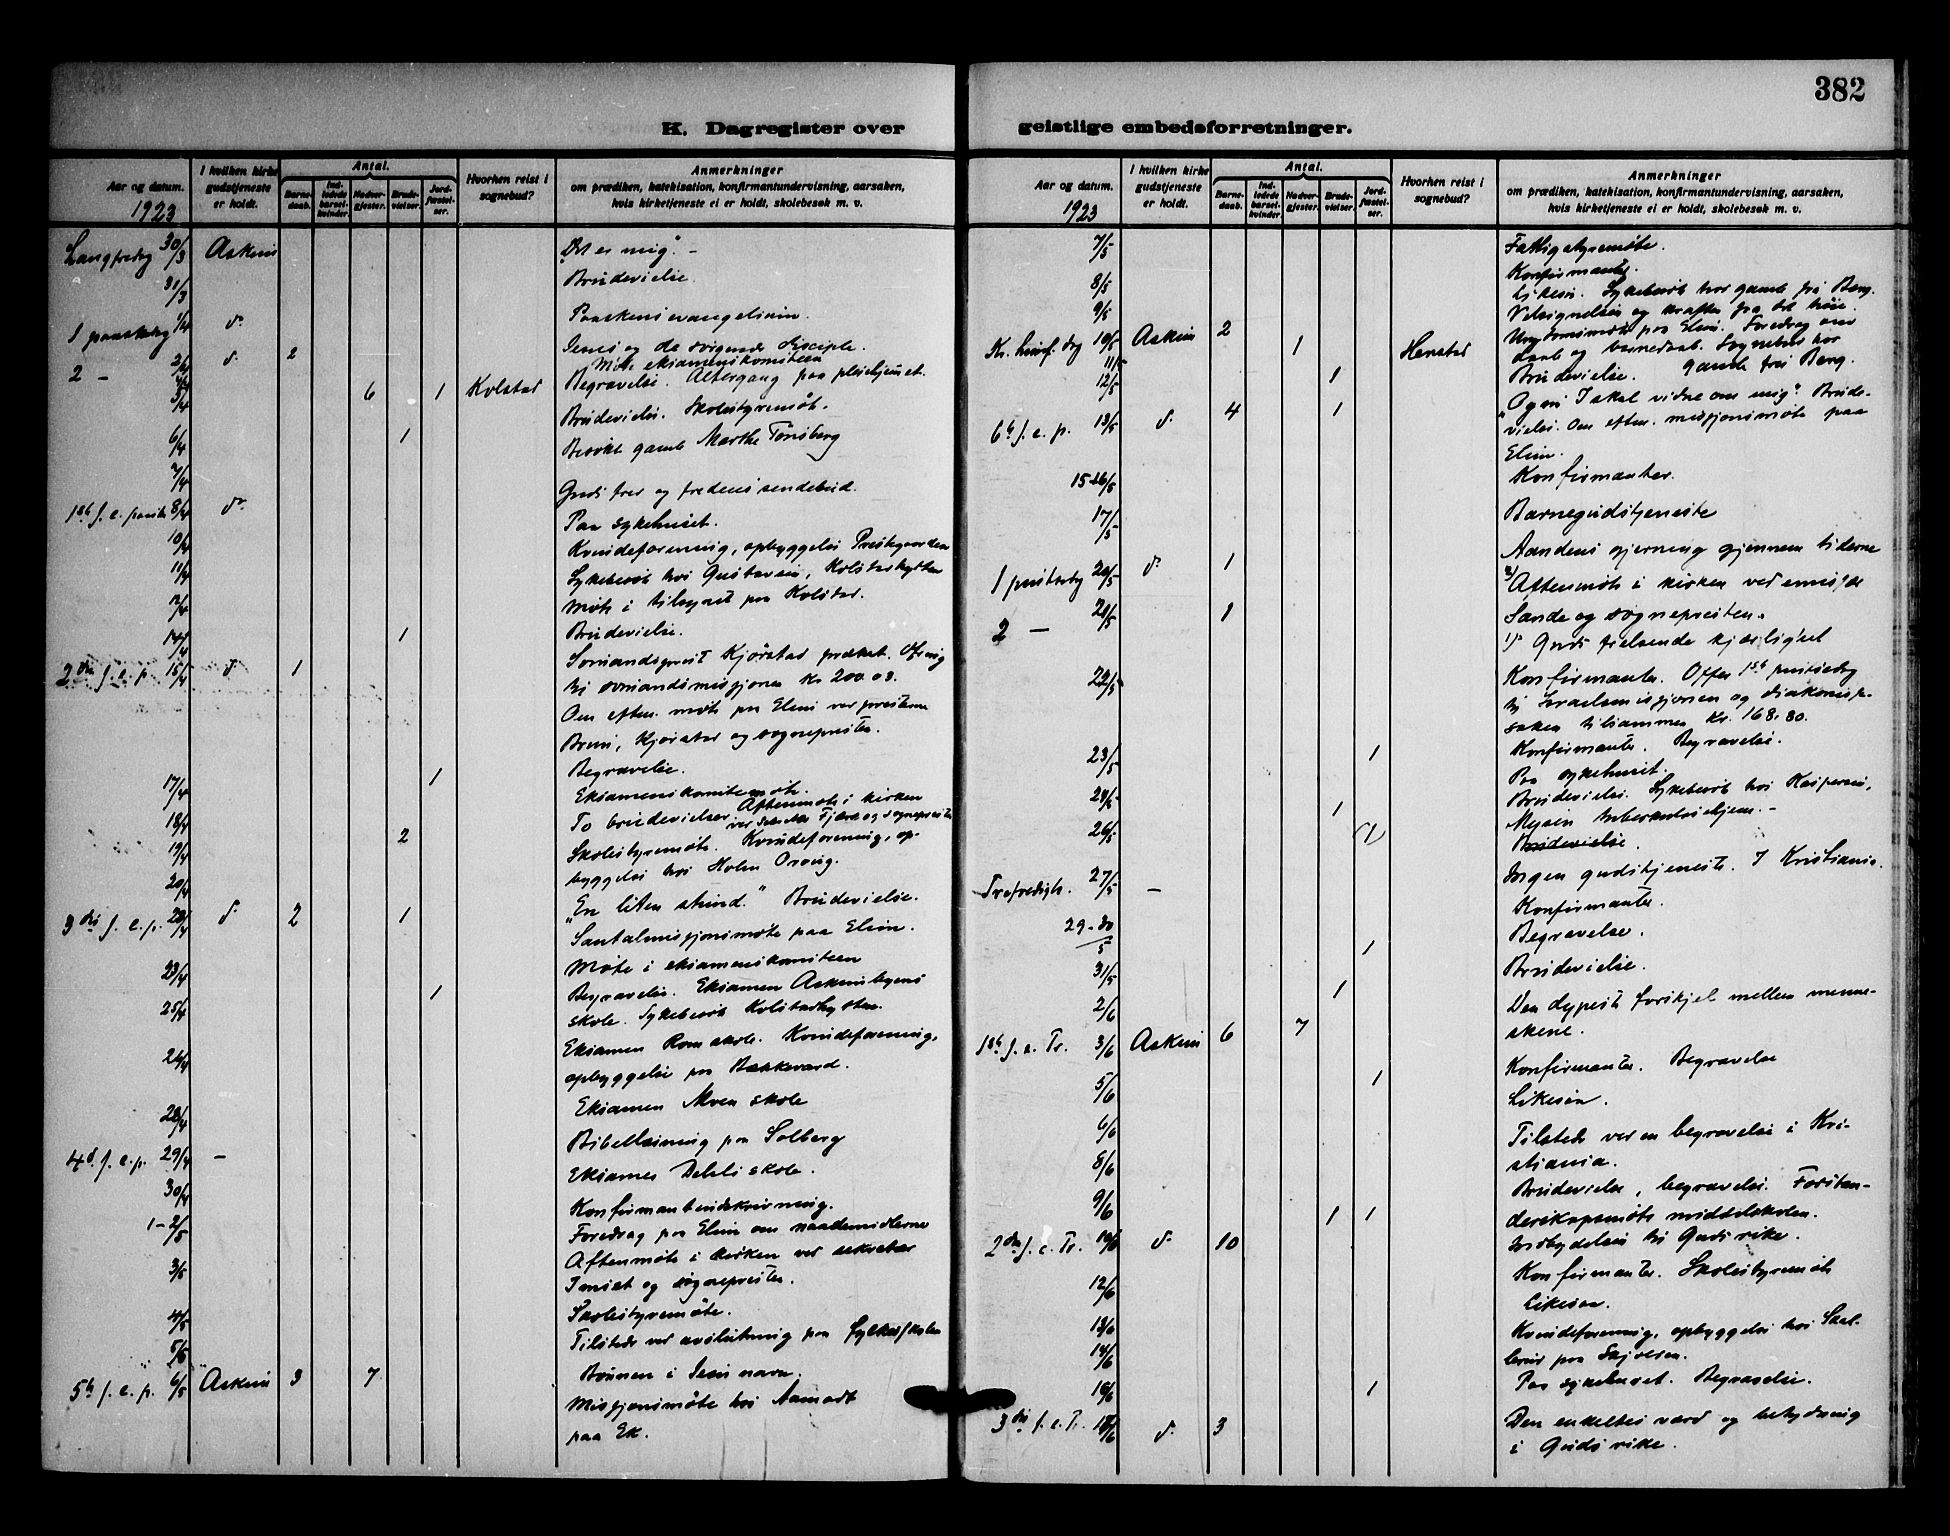 382
K. Dagregister over geistlige embedsforretninger.
Aar og datum.
1923
I hvilken kirke gudstjeneste er holdt.
Antal.
Barnedaab.
Indledede barselkvinder.
Nadvergjester.
Brudevielser.
Jordfæstelser.
Hvorhen reist i sognebud?
Anmerkninger
om prædiken, katekisation, konfirmantundervisning, aarsaken,
hvis kirketjeneste ei er holdt, skolebesøk m. v.
Langfredag 30/3 Askim "Det er mig". –
31/3 Brudevielse.
1 paaskedag 1/4 do Paaskens evangelium.
2 – 2/4 do 2 Jesus og de sørgende disciple.
Møte eksamenskomiteen
5/4 6 1 Kolstad Begravelse. Altergang paa pleiehjemmet.
6/4 1 Brudevielse. Skolestyremøte.
7/4 Besøkt gamle Marthe Tønsberg
1ste s. e. paaske 8/4 do Guds fred og fredens sendebud.
10/4 Paa sykehuset.
11/4 Kvindeforening, opbyggelse Prestegaarden
12/4 Sykebesøk hos Gustavsen, Kolstadhytten
Møte i tilsynet paa Kolstad.
14/4 1 Brudevielse.
2den s. e. p. 15/4 do 1 Sømandsprest Kjørstad prædiket. Ofring
til sømandsmisjonen kr 200.08.
Om eftm. møte paa Elim ved presterne
Bruun, Kjørstad og sognepresten.
17/4 1 Begravelse.
18/4 Eksamenskomitemøte.
19/4 2 To brudevielser. Aftenmøte i kirken
ved Fjære og sognepresten
20/4 Skolestyremøte. Kvindeforening, op-
byggelse hos Holm Oraug.
3die s. e. p. 22/4 do 2 1 "En liten stund." Brudevielse.
Santalmisjonsmøte paa Elim.
23/4 Møte i eksamenskomiteen
25/4 1 Begravelse. Eksamen Askimbyens
skole. Sykebesøk Kolstadhytten.
26/4 Eksamen Rom skole. Kvindeforening,
opbyggelse paa Bækkevard.
28/4 Eksamen Moen skole
4de s. e. p. 29/4 – Bibellæsning paa Solberg
30/4 Eksamen Deleli skole.
1–2/5 Konfirmantindskrivning.
Foredrag paa Elim om naademidlerne
3/5 Aftenmøte i kirken ved sekretær
Imset og sognepresten.
4/5 Skolestyremøte.
5/5 Tilstede ved avslutning paa fylkesskolen
5te s. e. p. 6/5 Askim 3 7 Bønnen i Jesu navn.
Misjonsmøte hos Aamodt
paa Ek.
Aar og datum.
1923
I hvilken kirke gudstjeneste er holdt.
Antal.
Barnedaab.
Indledede barselkvinder.
Nadvergjester.
Brudevielser.
Jordfæstelser.
Hvorhen reist i sognebud?
Anmerkninger
om prædiken, katekisation, konfirmantundervisning, aarsaken,
hvis kirketjeneste ei er holdt, skolebesøk m. v.
7/5 Fattigstyremøte.
8/5 Konfirmanter.
9/5 Likesaa. Sykebesøk hos gamle fru Berg.
Kr. himf. dag 10/5 Askim 2 Velsignelsen og kraften fra det høie.
11/5 1 Henstad Ungdomsmøte paa Elim. Foredrag om
daab og barnedaab. Sognebud hos
gamle fru Berg.
12/5 1 Brudevielse.
6te s. e. p. 13/5 do 4 1 "Ogsaa I skal vidne om mig". Brude-
vielse. Om eftm. misjonsmøte paa
Elim.
15–16/5 Konfirmanter.
17/5 Barnegudstjeneste
1 pinsedag 20/5 do 1 Aandens gjerning gjennem tiderne
2 – 21/5 1 2) Aftenmøte i kirken ved emissær
Sande og sognepresten.
1) Guds frelsende kjærlighet
22/5 Konfirmanter. Offer 1ste pinsedag
til Israelsmisjonen og diakonisse-
saken tilsammen kr. 168.80.
23/5 1 Konfirmanter. Begravelse.
24/5 Paa sykehuset.
26/5 1 Brudevielse. Sykebesøk hos Kaspersen,
Mysen tuberkulosehjem. –
Brudevielse.
Trefoldigh. 27/5 – Ingen gudstjeneste. I Kristiania.
29–30/5 Konfirmanter.
31/5 1 Begravelse.
2/6 1 Brudevielse.
1ste s. e. Tr. 3/6 Askim 6 7 Den dypeste forskjel mellem menne-
skene.
5/6 1 Konfirmanter. Begravelse
6/6 Likesaa.
8/6 Tilstede ved en begravelse i Kri-
stiania.
9/6 1 1 Brudevielse, begravelse. Forstan-
derskapsmøte middelskolen.
2den s. e. Tr. 10/6 do 10 Indbydelsen til Guds rike.
12/6 Konfirmanter. Skolestyremøte
13/6 Likesaa.
14/6 Kvindeforening, opbyggelse hos
paa Skjolden.
16/6 1 Paa sykehuset. Begravelse.
3die s. e. Tr. 17/6 do 3 Den enkeltes værd og betydning
i Guds rike.